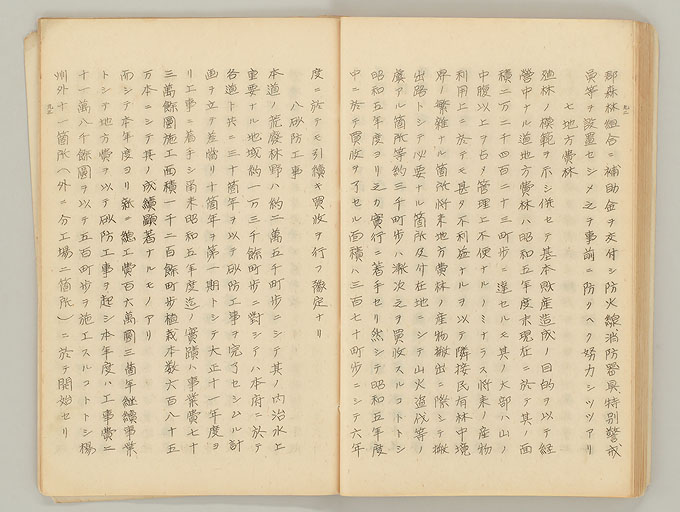 郡森林組合ニ補助金ヲ交付シ防火線消防器具特別警戒
員等ヲ設置セシメ之ヲ事前ニ防クヘク努力シツツアリ
七 地方費林
殖林ノ模範ヲ示シ併セテ基本財産造成ノ目的ヲ以テ経
営中ナル道地方費林ハ昭和五年度末現在ニ於テ其ノ面
積二万二千四百二十三町歩ニ達セルモ其ノ大部ハ山ノ
中腹以上ヲ占メ管理上不便ナルノミナラス将来ノ産物
利用上ニ於テモ甚タ不利益ナルヲ以テ隣接民有林中境
界ノ繁雑ナル箇所将来地方費林ノ産物搬出ニ際シテ搬
出路トシテ必要ナル箇所及付在地ニシテ山火盗伐等ノ
虞アル箇所等約三千町歩ハ漸次之ヲ買收スルコトトシ
昭和五年度ヨリ之カ實行ニ着手セリ然シテ昭和五年度
中ニ於テ買收ヲ了セル面積ハ三百七十町歩ニシテ六年
度ニ於テモ引續キ買收ヲ行フ豫定ナリ
八 砂防工事
本道ノ荒廢林野ハ約二萬五千町歩ニシテ其ノ内治水上
重要ナル地域約一万三千餘町歩ニ對シテハ本府ニ於テ
各道ト共ニ三十箇年ヲ以テ砂防工事ヲ完了セシムル計
画ヲ立テ差當リ十箇年ヲ第一期トシテ大正十一年度ヨ
リ工事ニ着手シ爾来昭和五年度迄ノ實蹟ハ事業費七十
三萬餘圓施工面積一千二百餘町歩植栽本数六百八十五
万本ニシテ其ノ成績顕著ナルモノアリ
而シテ本年度ヨリ新ニ總工費百六萬圓三箇年継續事業
トシテ地方費ヲ以テ砂防工事ヲ起シ本年度ハ工事費二
十一萬八千餘圓ヲ以テ五百町歩ヲ施工スルコトトシ楊
州外十一箇所（外ニ分工場二箇所）ニ於テ開始セリ